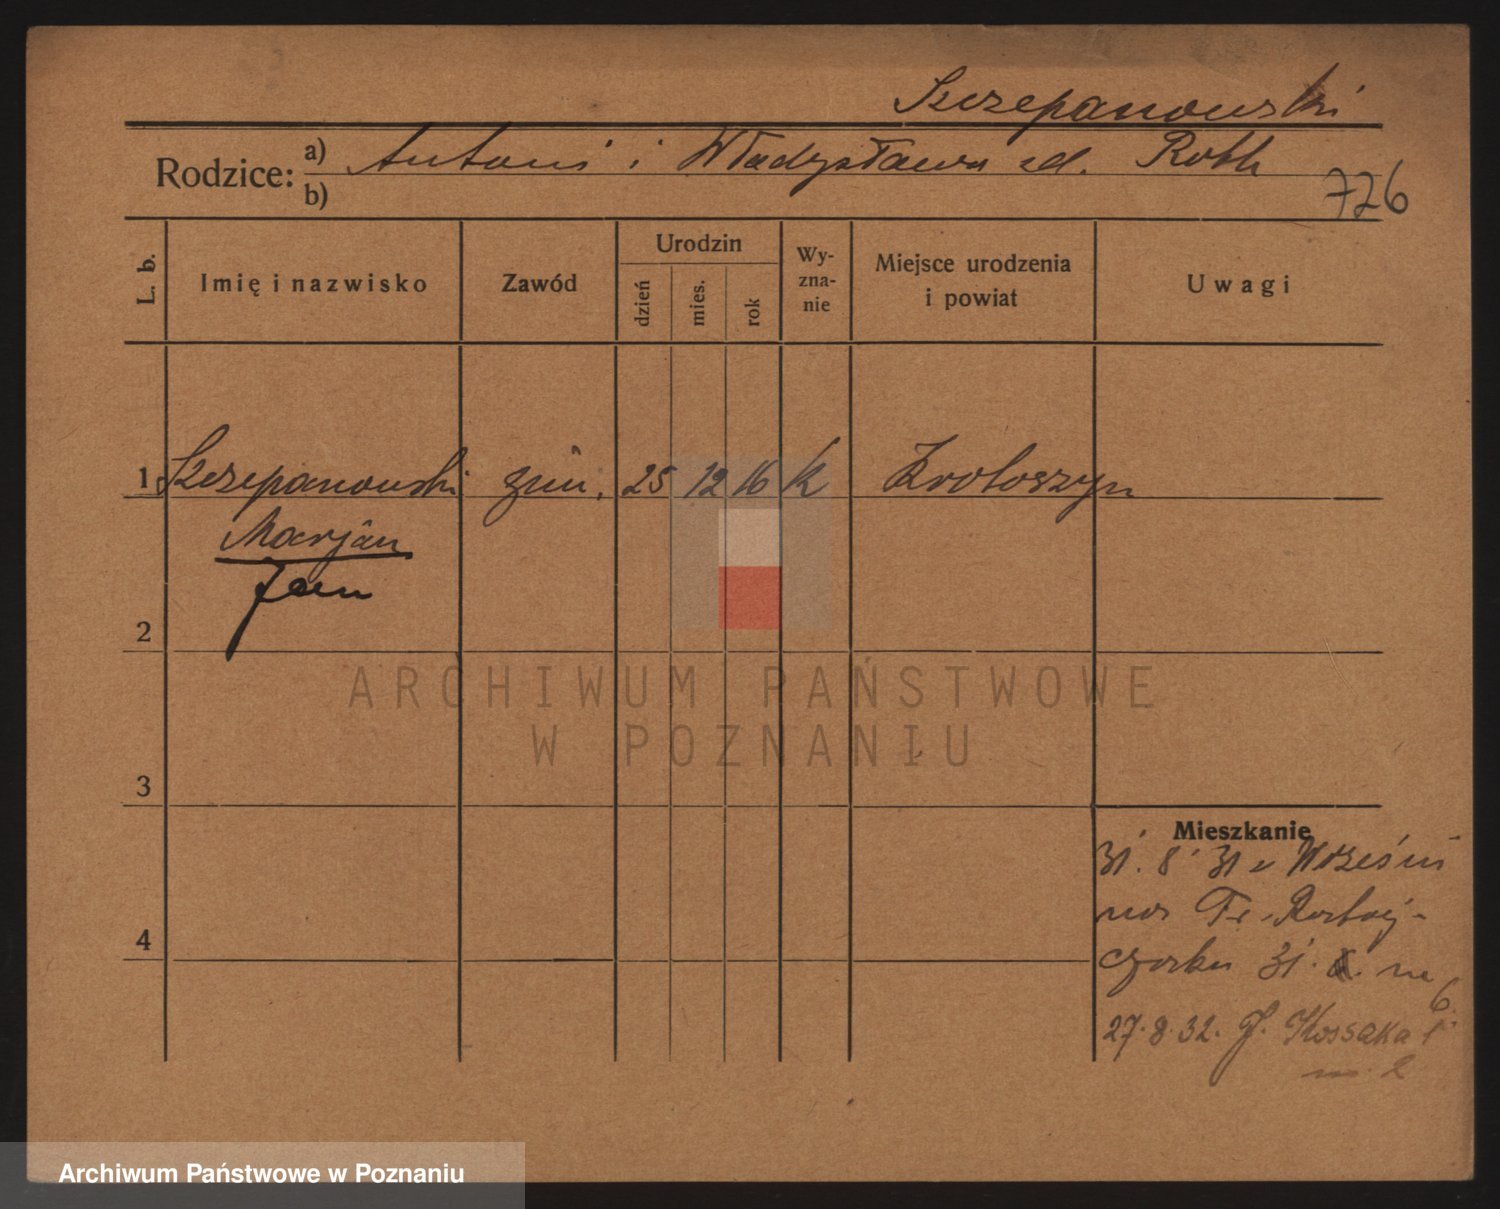 Szczepanowski
Rodzice: a) Antoni i Władysława zd. Roth
b)
726
L. b. Imię i nazwisko Zawód Urodzin dzień mies. rok Wyznanie Miejsce urodzenia i powiat Uwagi
1 Szczepanowski 25 12 16 k Krotoszyn
Marjan
Jan
2
3
4
Mieszkanie
31. 8. 31 z Wrześni
Fr. Rataj-
czaka 31.
27.8.32. J. Kossaka 6
m. 2
ARCHIWUM PAŃSTWOWE
W POZNANIU
Archiwum Państwowe w Poznaniu